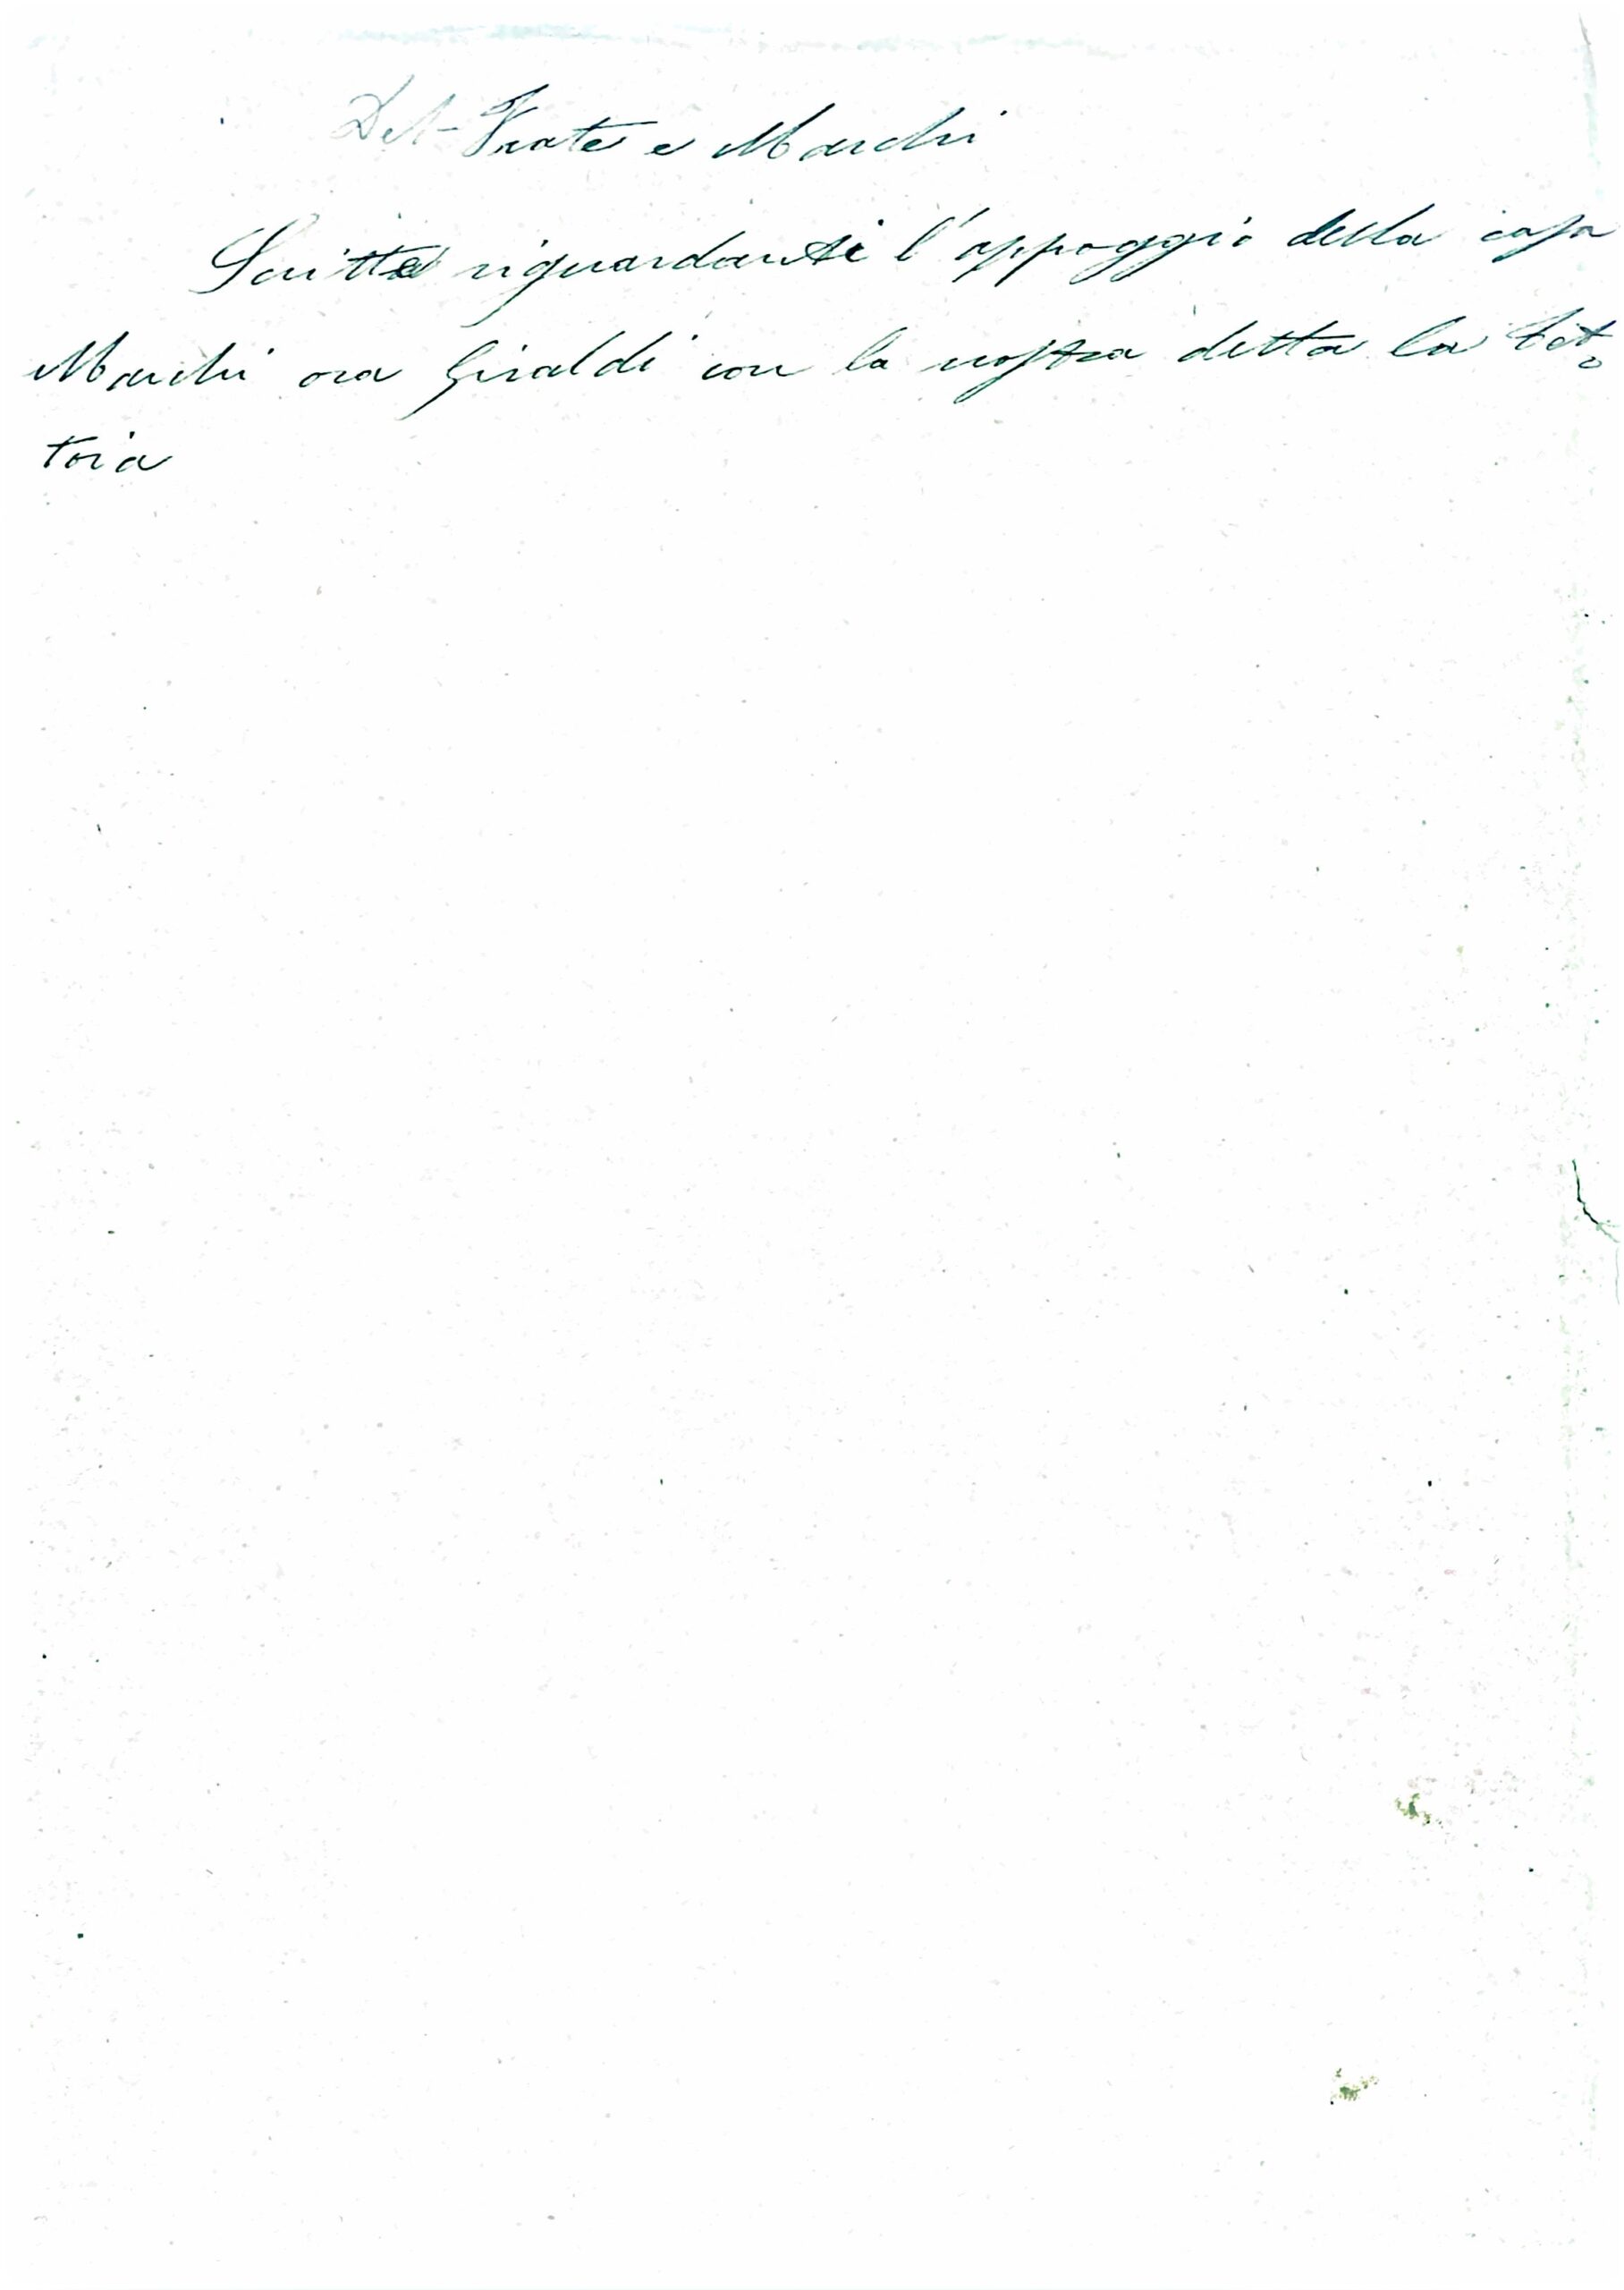 Del-Frate e Marchi
Scritte riguardanti l'appoggio della casa
Marchi ora Giraldi con la nostra detta la Tet=
toia